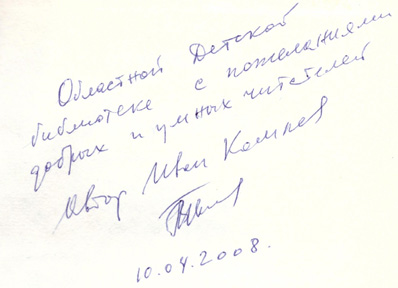 Областной Детской
библиотеке с пожеланиями
добрых и умных читателей
Автор Иван
10.04.2008.